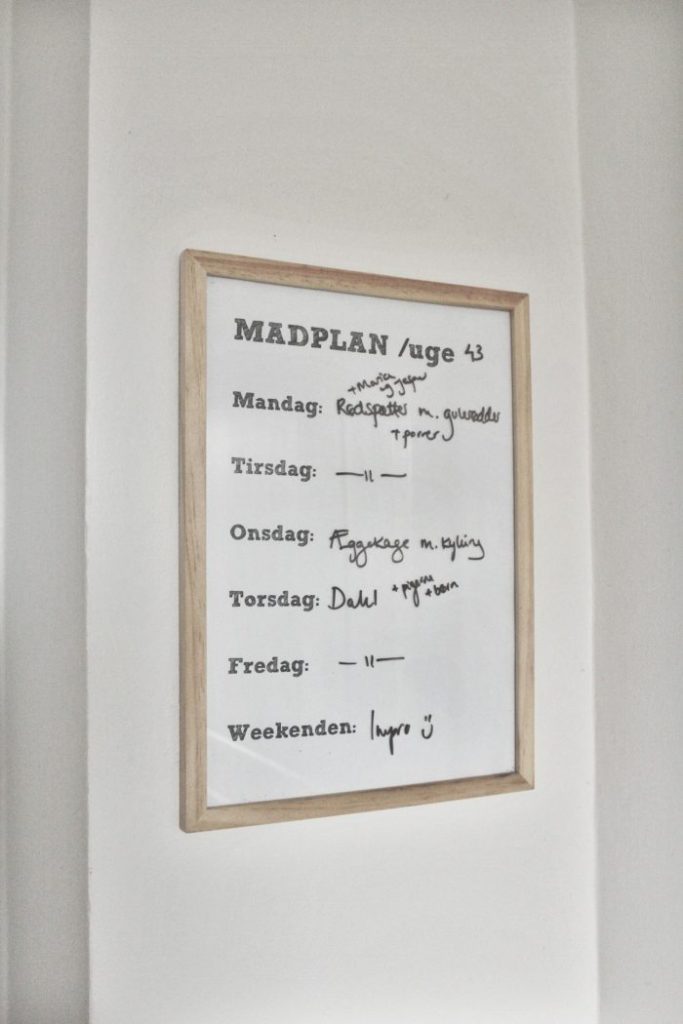 MADPLAN /uge 43
+ Maria
og Jesper
Mandag: Rødspætter m. gulerødder
+ porrer
Tirsdag: — 11 —
Onsdag: Æggekage m. kylling
Torsdag: Dahl + pigerne
+ børn
Fredag: — 11 —
Weekenden: Impro :)